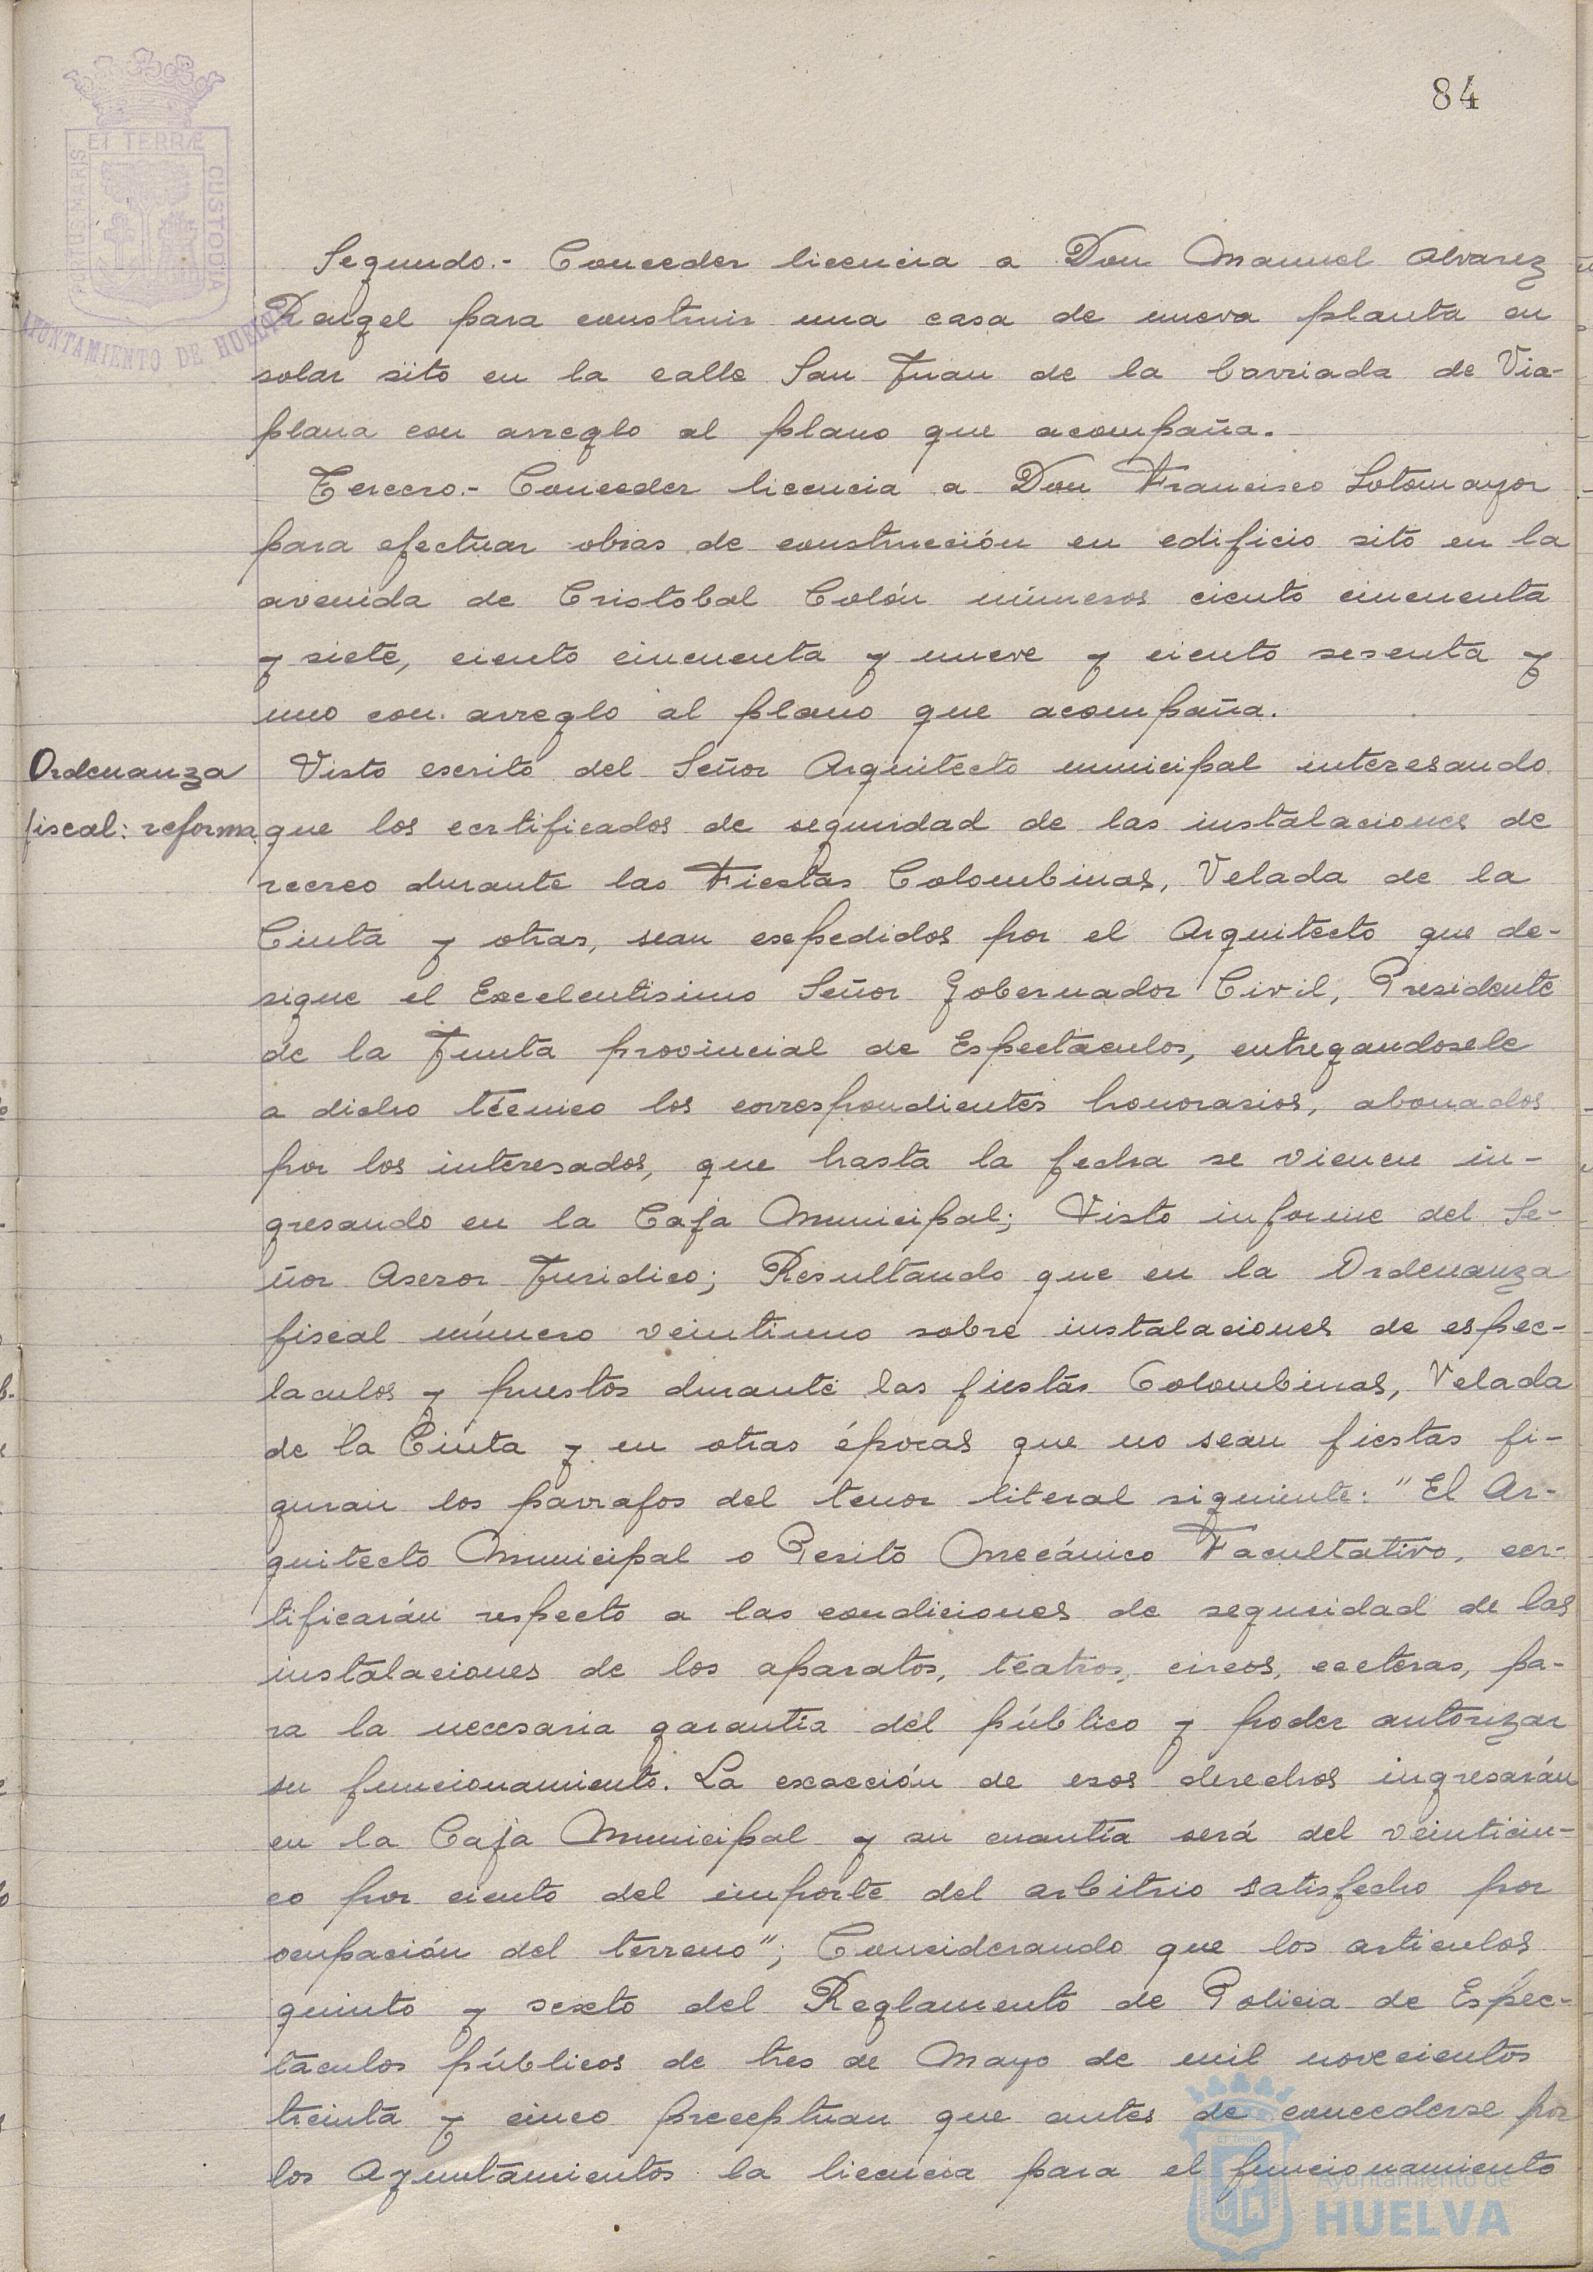 84
ET TERRÆ
CUSTODIA
PORTUS MARIS
AYUNTAMIENTO DE HUELVA
Segundo.- Conceder licencia a Don Manuel Alvarez
Rangel para construir una casa de nueva planta en
solar sito en la calle San Juan de la barriada de Via-
plana con arreglo al plano que acompaña.
Tercero.- Conceder licencia a Don Francisco Sotomayor
para efectuar obras de construcción en edificio sito en la
avenida de Cristobal Colón números ciento cincuenta
y siete, ciento cincuenta y nueve y ciento sesenta y
uno con arreglo al plano que acompaña.
Ordenanza
fiscal: reforma
Visto escrito del Señor Arquitecto municipal interesando
que los certificados de seguridad de las instalaciones de
recreo durante las Fiestas Colombinas, Velada de la
Cinta y otras, sean expedidos por el Arquitecto que de-
signe el Excelentisimo Señor Gobernador Civil, Presidente
de la Junta provincial de Espectáculos, entregandosele
a dicho técnico los correspondientes honorarios, abonados
por los interesados, que hasta la fecha se vienen in-
gresando en la Caja Municipal; Visto informe del Se-
ñor Asesor Juridico; Resultando que en la Ordenanza
fiscal número veintiuno sobre instalaciones de espec-
taculos y puestos durante las fiestas Colombinas, Velada
de la Cinta y en otras épocas que no sean fiestas fi-
guran los parrafos del tenor literal siguiente: "El Ar-
quitecto Municipal o Perito Mecánico Facultativo, cer-
tificarán respecto a las condiciones de seguridad de las
instalaciones de los aparatos, teatros, circos, ecetéras, pa-
ra la necesaria garantia del público y poder autorizar
su funcionamiento. La exacción de esos derechos ingresarán
en la Caja Municipal y su cuantía será del veinticin-
co por ciento del importe del arbitrio satisfecho por
ocupación del terreno"; Considerando que los articulos
quinto y sexto del Reglamento de Policia de Espec-
táculos públicos de tres de Mayo de mil novecientos
treinta y cinco preceptuan que antes de concederse por
los Ayuntamientos la licencia para el funcionamiento
Ayuntamiento de
HUELVA